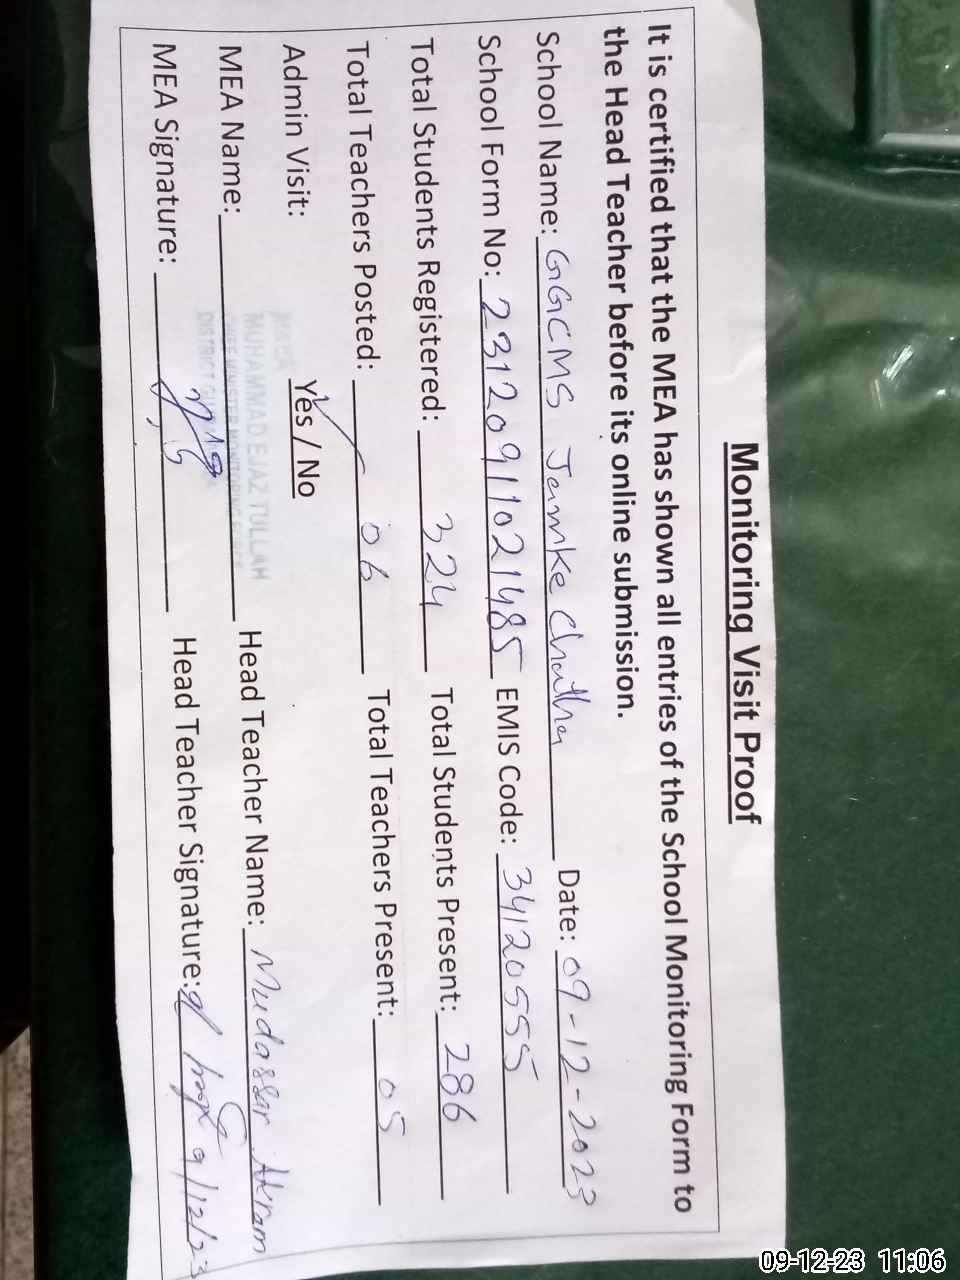 Monitoring Visit Proof
It is certified that the MEA has shown all entries of the School Monitoring Form to
the Head Teacher before its online submission.
School Name: GGCMS Jamke Chatha Date: 09-12-2023
School Form No: 23120911021485 EMIS Code: 34120555
Total Students Registered: 324 Total Students Present: 286
Total Teachers Posted: 06 Total Teachers Present: 05
Admin Visit: Yes / No
MUHAMMAD EJAZ TULLAH
MEA Name: Head Teacher Name: Mudassar Akram
MEA Signature: Head Teacher Signature: 9/12/23
09-12-23 11:06